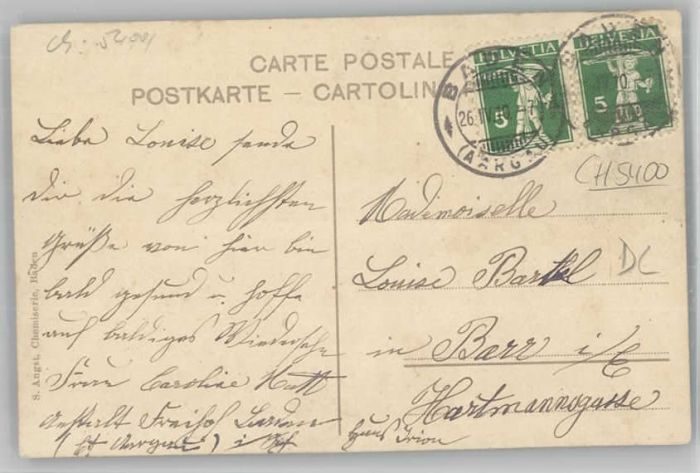 ch: 54001
CARTE POSTALE
POSTKARTE – CARTOLINA
HELVETIA
HELVETIA
5
5
BADEN
26.
(AARGAU)
CH5400
Liebe Louise sende
Dir die herzlichsten
Grüße von hier bin
bald gesund u. hoffe
auf baldiges Wiedersehn
Frau Caroline
Anstalt Freihof Baden
Mademoiselle
Louise Bartel
DC
in Barr i/E
Hartmannsgasse
S. Angst, Chemiserie, Baden